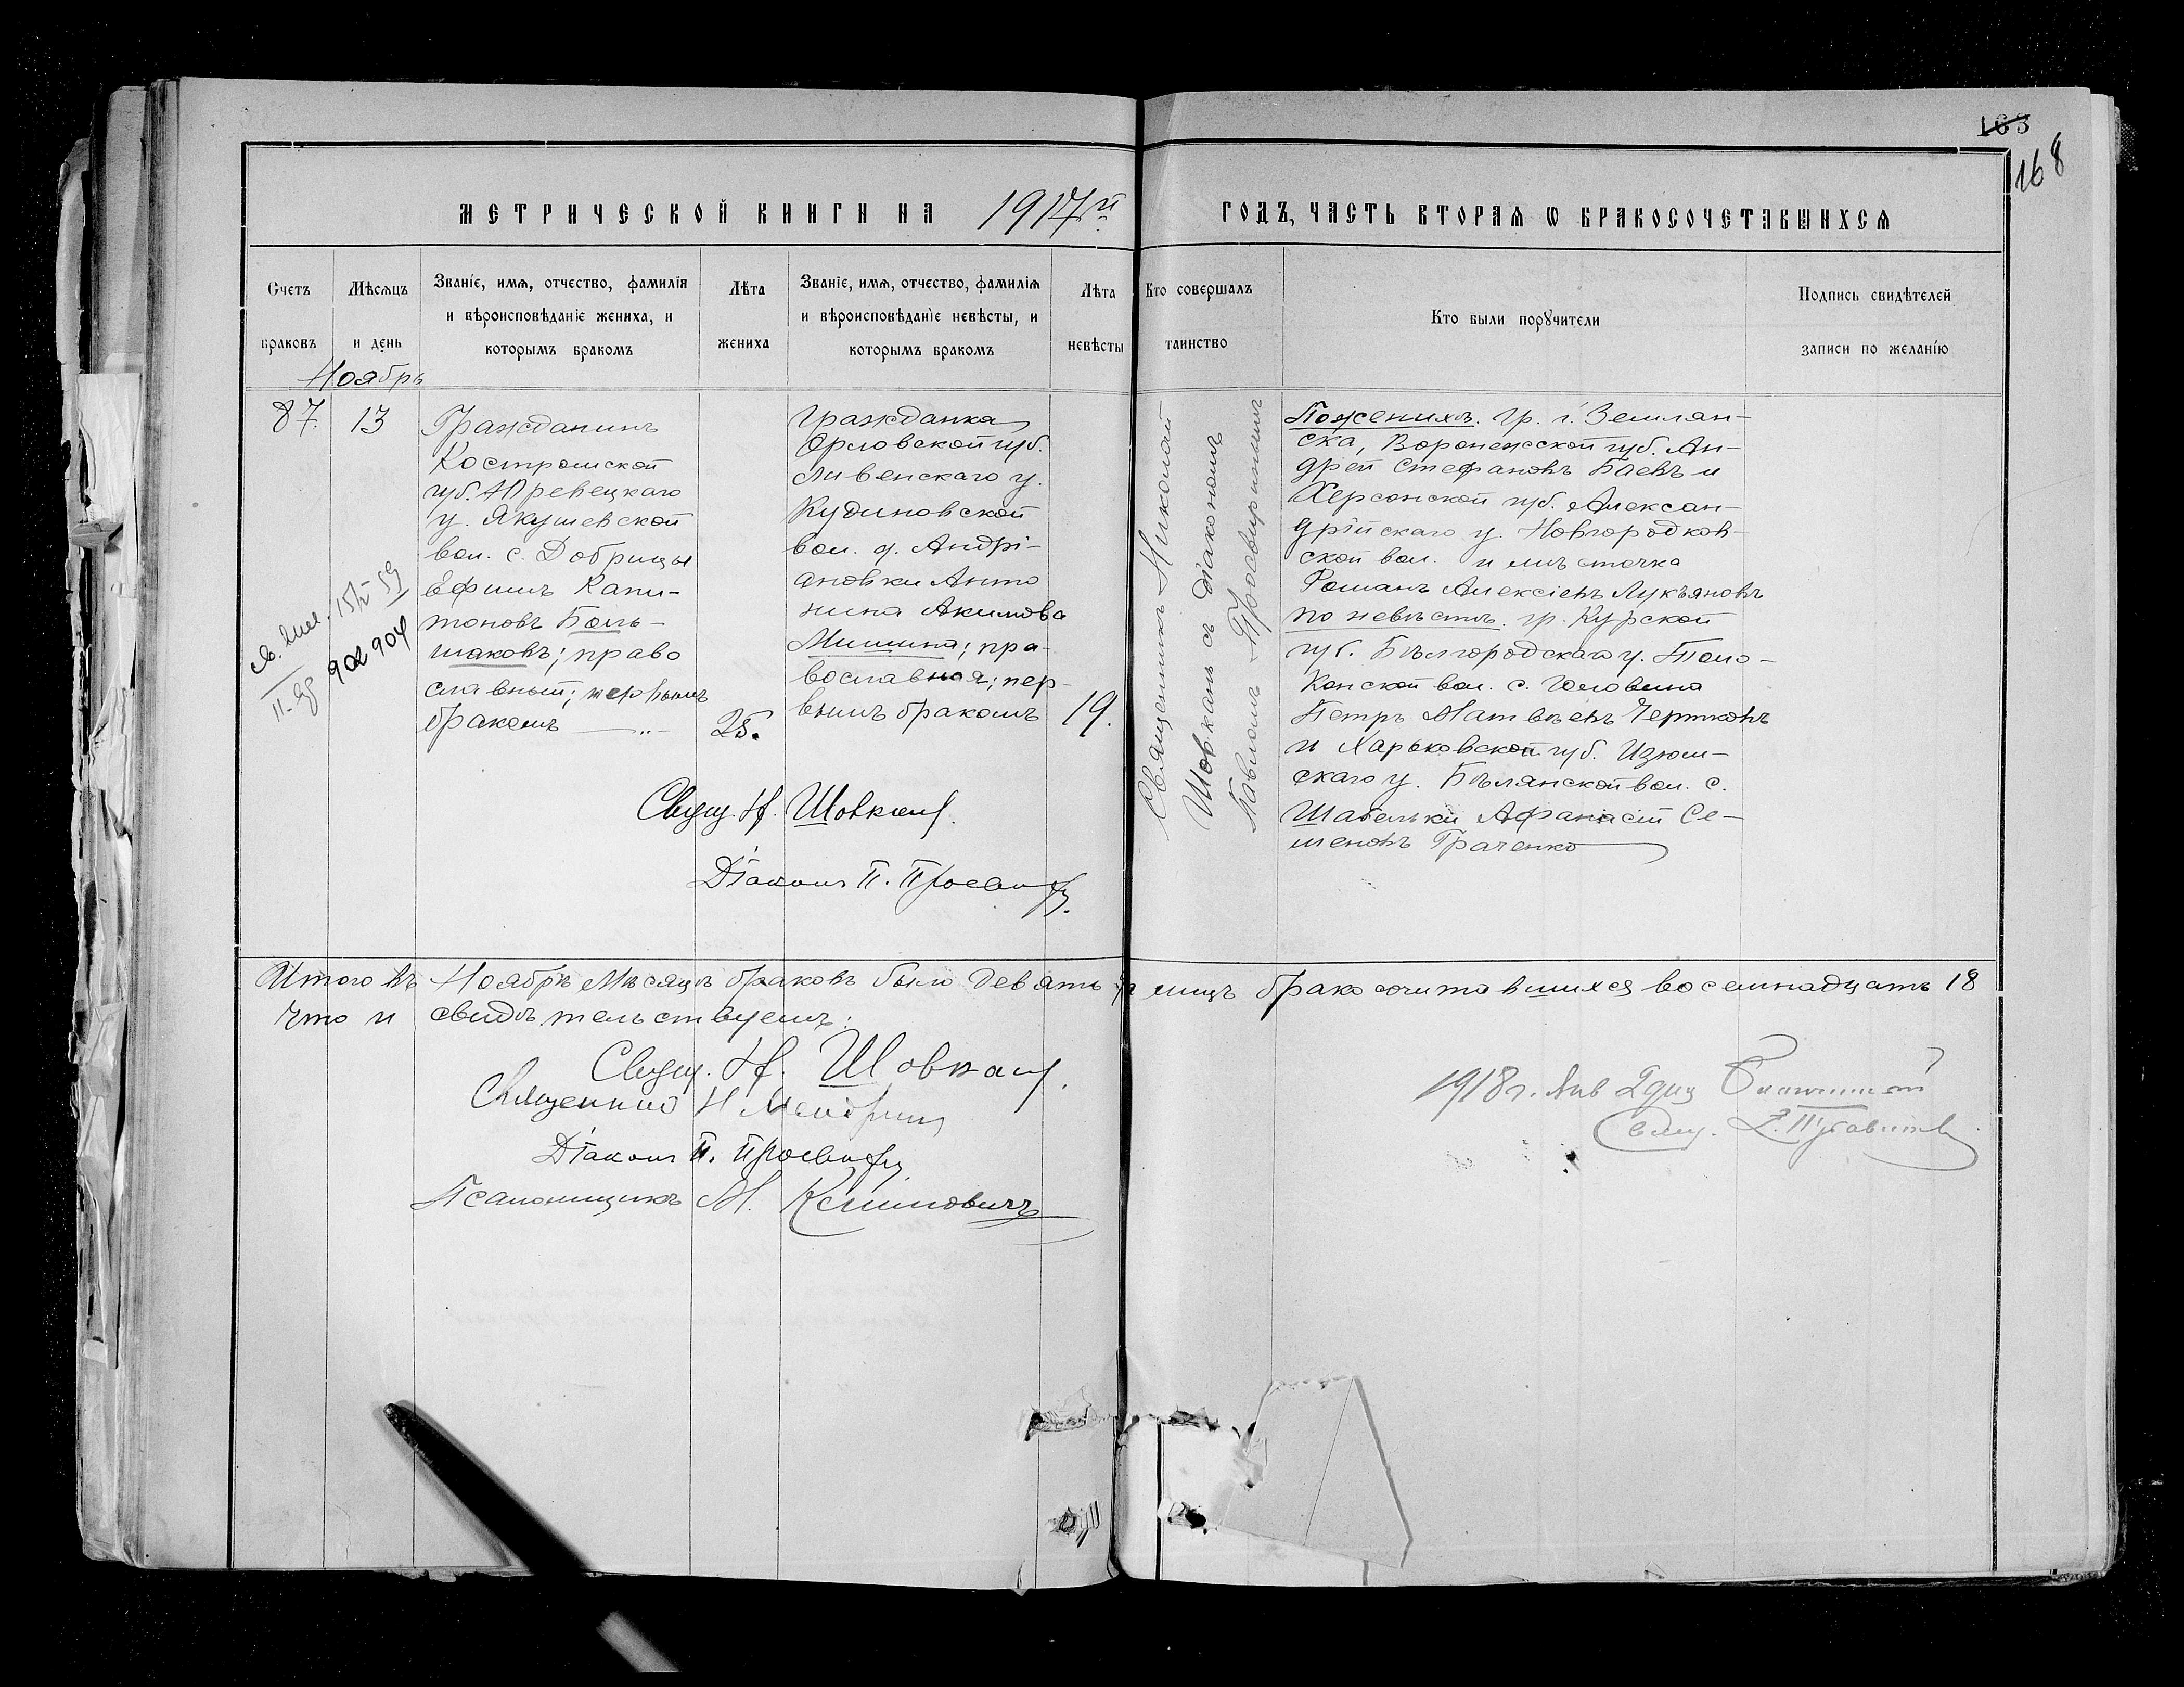 163
168
МЕТРИЧЕСКОЙ КНИГИ НА 1917й ГОДЪ, ЧАСТЬ ВТОРАѦ Ѡ БРАКОСОЧЕТАВШИХСѦ
Счетъ
браковъ
Мѣсѧцъ
и день
Званіе, имѧ, отчество, фамилія
и вѣроисповѣданіе жениха, и
которымъ бракомъ
Лѣта
жениха
Званіе, имѧ, отчество, фамиліѧ
и вѣроисповѣданіе невѣсты, и
которымъ бракомъ
Лѣта
невѣсты
Кто совершалъ
таинство
Кто были порꙋчители
Подпись свидѣтелей
записи по желанію
Ноябрь
87.
13
Гражданинъ
Костромской
губ. Юревецкаго
у. Якушевской
вол. с. Добрицы
Ефимъ Капи-
тоновъ Боль-
шаковъ; право
славный; первымъ
бракомъ
25.
Гражданка
Орловской губ.
Ливенскаго у.
Кудиновской
вол. д. Андрі-
ановки Анто
нина Акимова
Мишина; пра-
вославная; пер-
вымъ бракомъ
19.
Священникъ Николай
Шовкань съ діакономъ
Павломъ Просвирнинымъ
По женихѣ. гр. г. Землян-
ска, Воронежской губ. Ан-
дрей Стефановъ Баевъ и
Херсонской губ. Алексан-
дрійскаго у. Новгородков-
ской вол. и мѣстечка
Романъ Алексіевъ Лукъяновъ
по невѣстѣ. гр. Курской
губ. Бѣлгородскаго у. Толо-
Конской вол. с. Головина
Петръ Матвѣевъ Чертковъ
и Харьковской губ. Изюм-
скаго у. Бѣлянской вол. с.
Шабельки Афанасій Се-
меновъ Граченко
15/2 59
902 904
Свящ. Н. Шовкань.
Діаконъ П. Просви
Итого въ Ноябрѣ Мѣсяцѣ браковъ было девять 9 лицъ бракосочитавшихся восемнадцать 18
Что и свидѣтельствуемъ:
Свящ. Н. Шовкань.
Священникъ Н
Діаконъ П. Просвир
Псаломщикъ М. Климовичъ
1918 г. Янв 2 дня
Свящ.